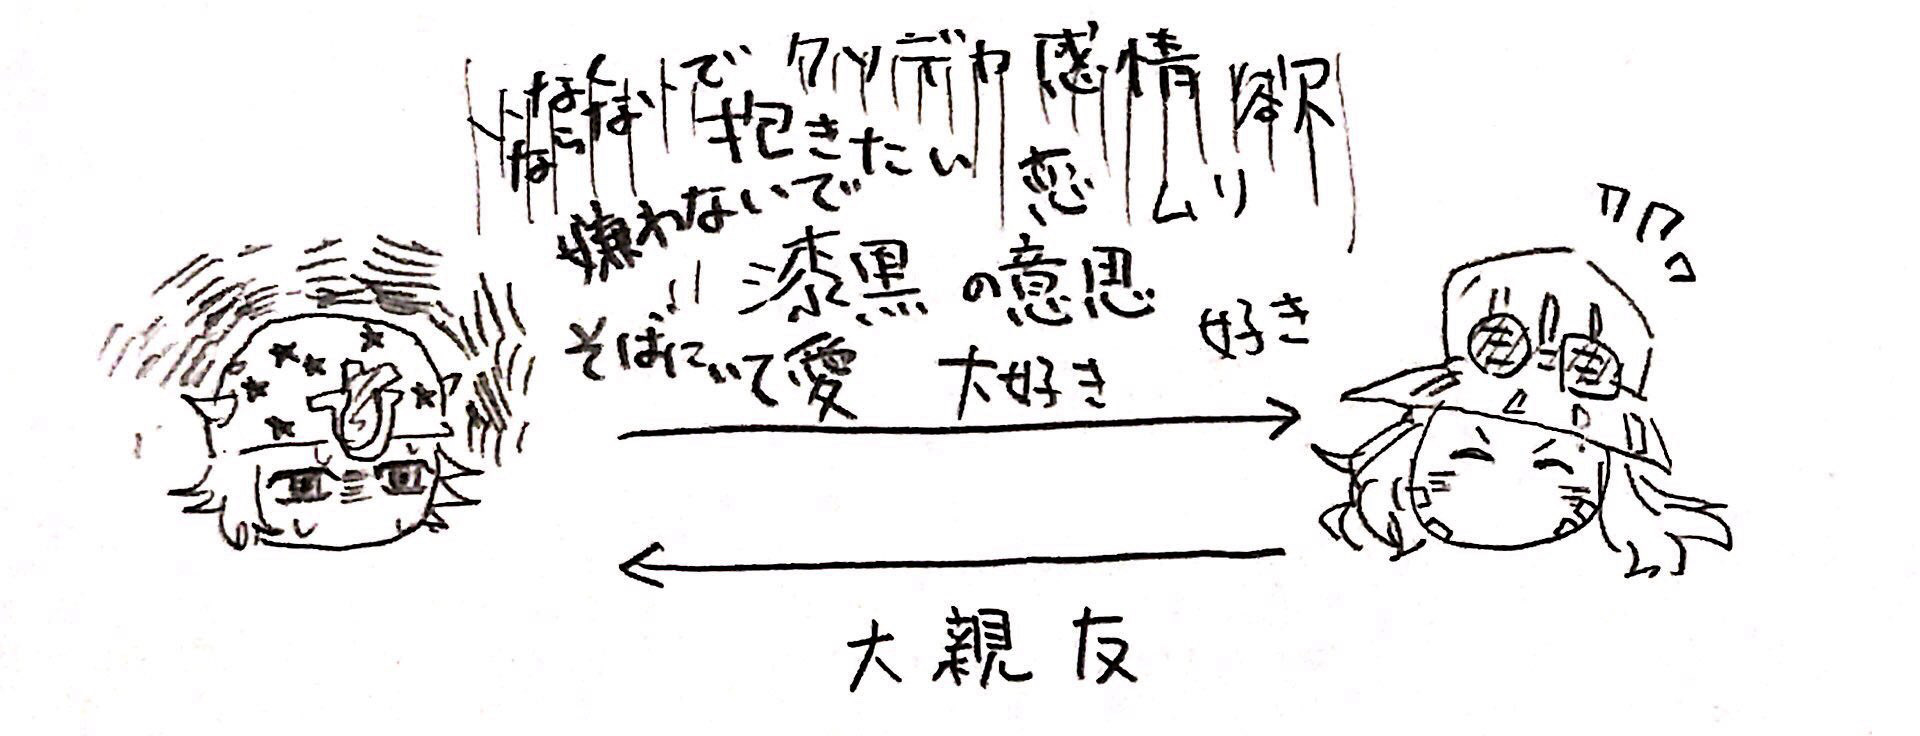 いなくならないで
クソデカ感情 欲
抱きたい 恋 ムリ
嫌わないで
漆黒の意思
そばにいて 愛 大好き 好き
大親友